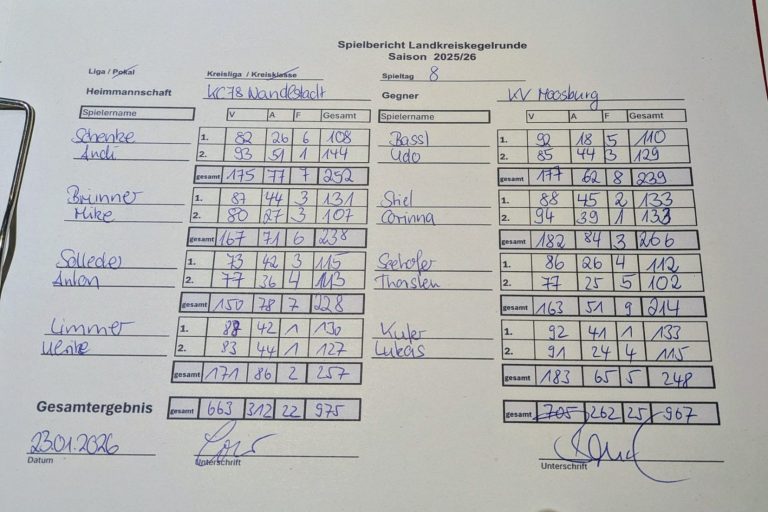 Spielbericht Landkreiskegelrunde
Saison 2025/26
Liga / Pokal Kreisliga / Kreisklasse Spieltag 8
Heimmannschaft KC78 Nandlstadt Gegner KV Moosburg
Spielername V A F Gesamt Spielername V A F Gesamt
Schenke 1. 82 26 6 108 Bassl 1. 92 18 5 110
Andi 2. 93 51 1 144 Udo 2. 85 44 3 129
gesamt 175 77 7 252 gesamt 177 62 8 239
Brunner 1. 87 44 3 131 Stiel 1. 88 45 2 133
Mike 2. 80 27 3 107 Corinna 2. 94 39 1 133
gesamt 167 71 6 238 gesamt 182 84 3 266
Solleder 1. 73 42 3 115 Seehofer 1. 86 26 4 112
Anton 2. 77 36 4 113 Thorsten 2. 77 25 5 102
gesamt 150 78 7 228 gesamt 163 51 9 214
Limmer 1. 88 42 1 130 1. 92 41 1 133
Ulrike 2. 83 44 1 127 Lukas 2. 91 24 4 115
gesamt 171 86 2 257 gesamt 183 65 5 248
Gesamtergebnis gesamt 663 312 22 975 gesamt 705 262 25 967
23.01.2026
Datum Unterschrift Unterschrift